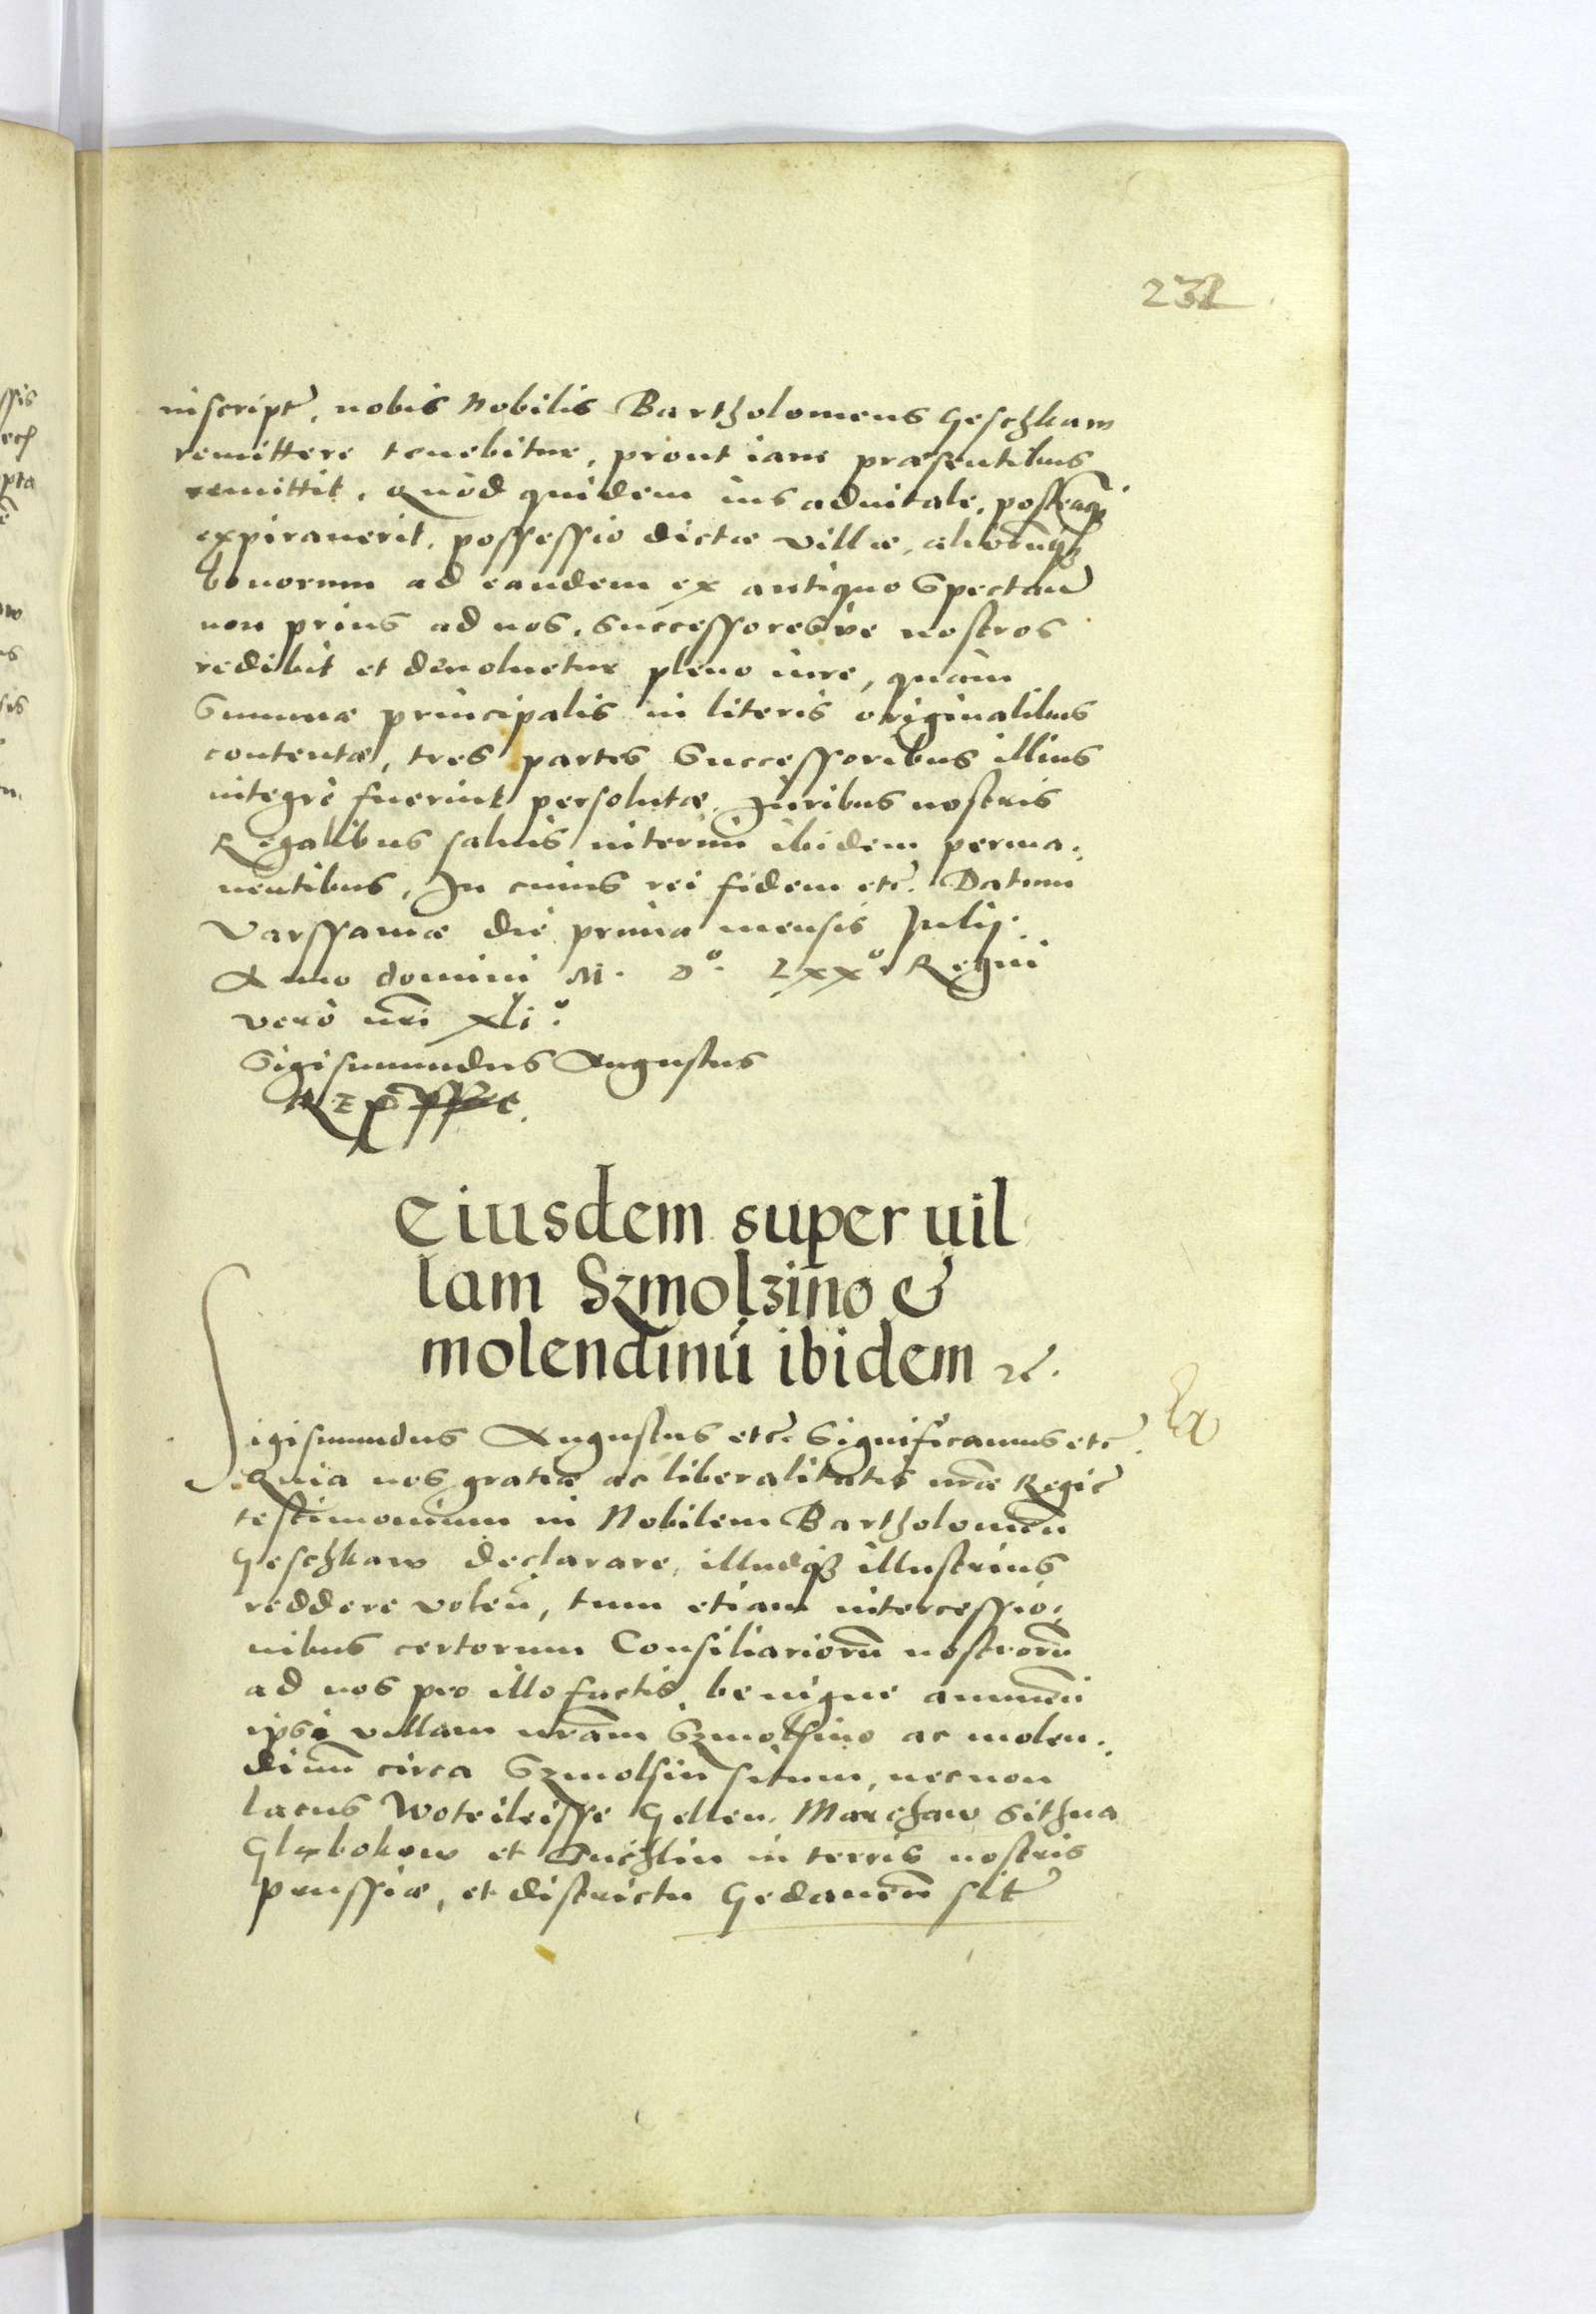 232
inscript, nobis Nobilis Bartholomeus Geschkaw
remittere tenebitur, prout iam praesentibus
remittit. Quod quidem ius aduitale, posteaq̃
expirauerit, possessio dictae villae, aliorumq₃
bonorum ad eandem ex antiquo Spectan̄
non prius ad nos, Successoresue nostros
redibit et deuoluetur pleno iure, quàm
Summae principalis in literis originalibus
contentae, tres partes Successoribus illius
integrè fuerint persolutae. Juribus nostris
Regalibus saluis interim ibidem perma,,
nentibus, In cuius rei fidem etc̃. Datum
Varssauiae die prima mensis Julij.
Anno domini M. D°. Lxx°. Regni
verò nr̃i xli°.
Sigismundus Augustus
Rex
Eiusdem super uil
lam Szmolzino &
molendinū ibidem ⁊c̃.
Sigismundus Augustus etc̃. Significamus etc̃.
Quia nos gratiae ac liberalitatis nr̃ae Regie
testimonium in Nobilem Bartholomeū
Geschkaw declarare, illudq₃ illustrius
reddere volen̄, tum etiam intercessio,,
nibus certorum Consiliariorū nostrorū
ad nos pro illo factis, benigne annuen̄
ipsi villam nr̃am Szmolsino ac molen,,
dinū circa Szmolsin situm, necnon
lacus Woteileisse Gellen, Marchaw Sithna
Glębokow et Suchlin in terris nostris
Prussiae, et districtu Gedanen̄ sit